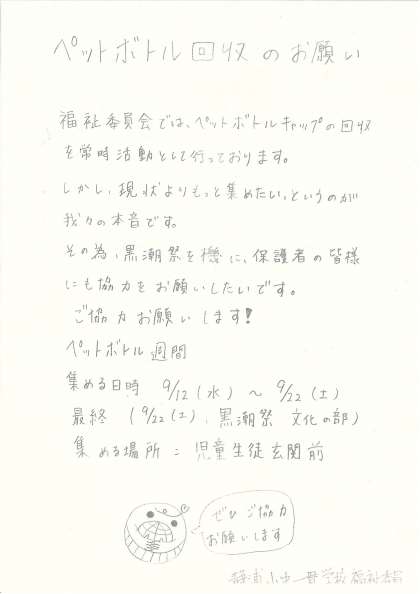 ペットボトル回収のお願い
福祉委員会では、ペットボトルキャップの回収
を常時活動として行っております。
しかし、現状よりもっと集めたい、というのが
我々の本音です。
その為、黒潮祭を機に、保護者の皆様
にも協力をお願いしたいです。
ご協力お願いします!
ペットボトル週間
集める日時 9/12(水)~9/22(土)
最終(9/22(土)、黒潮祭 文化の部)
集める場所:児童生徒玄関前
ぜひご協力
お願いします
小中一貫学校福祉委員